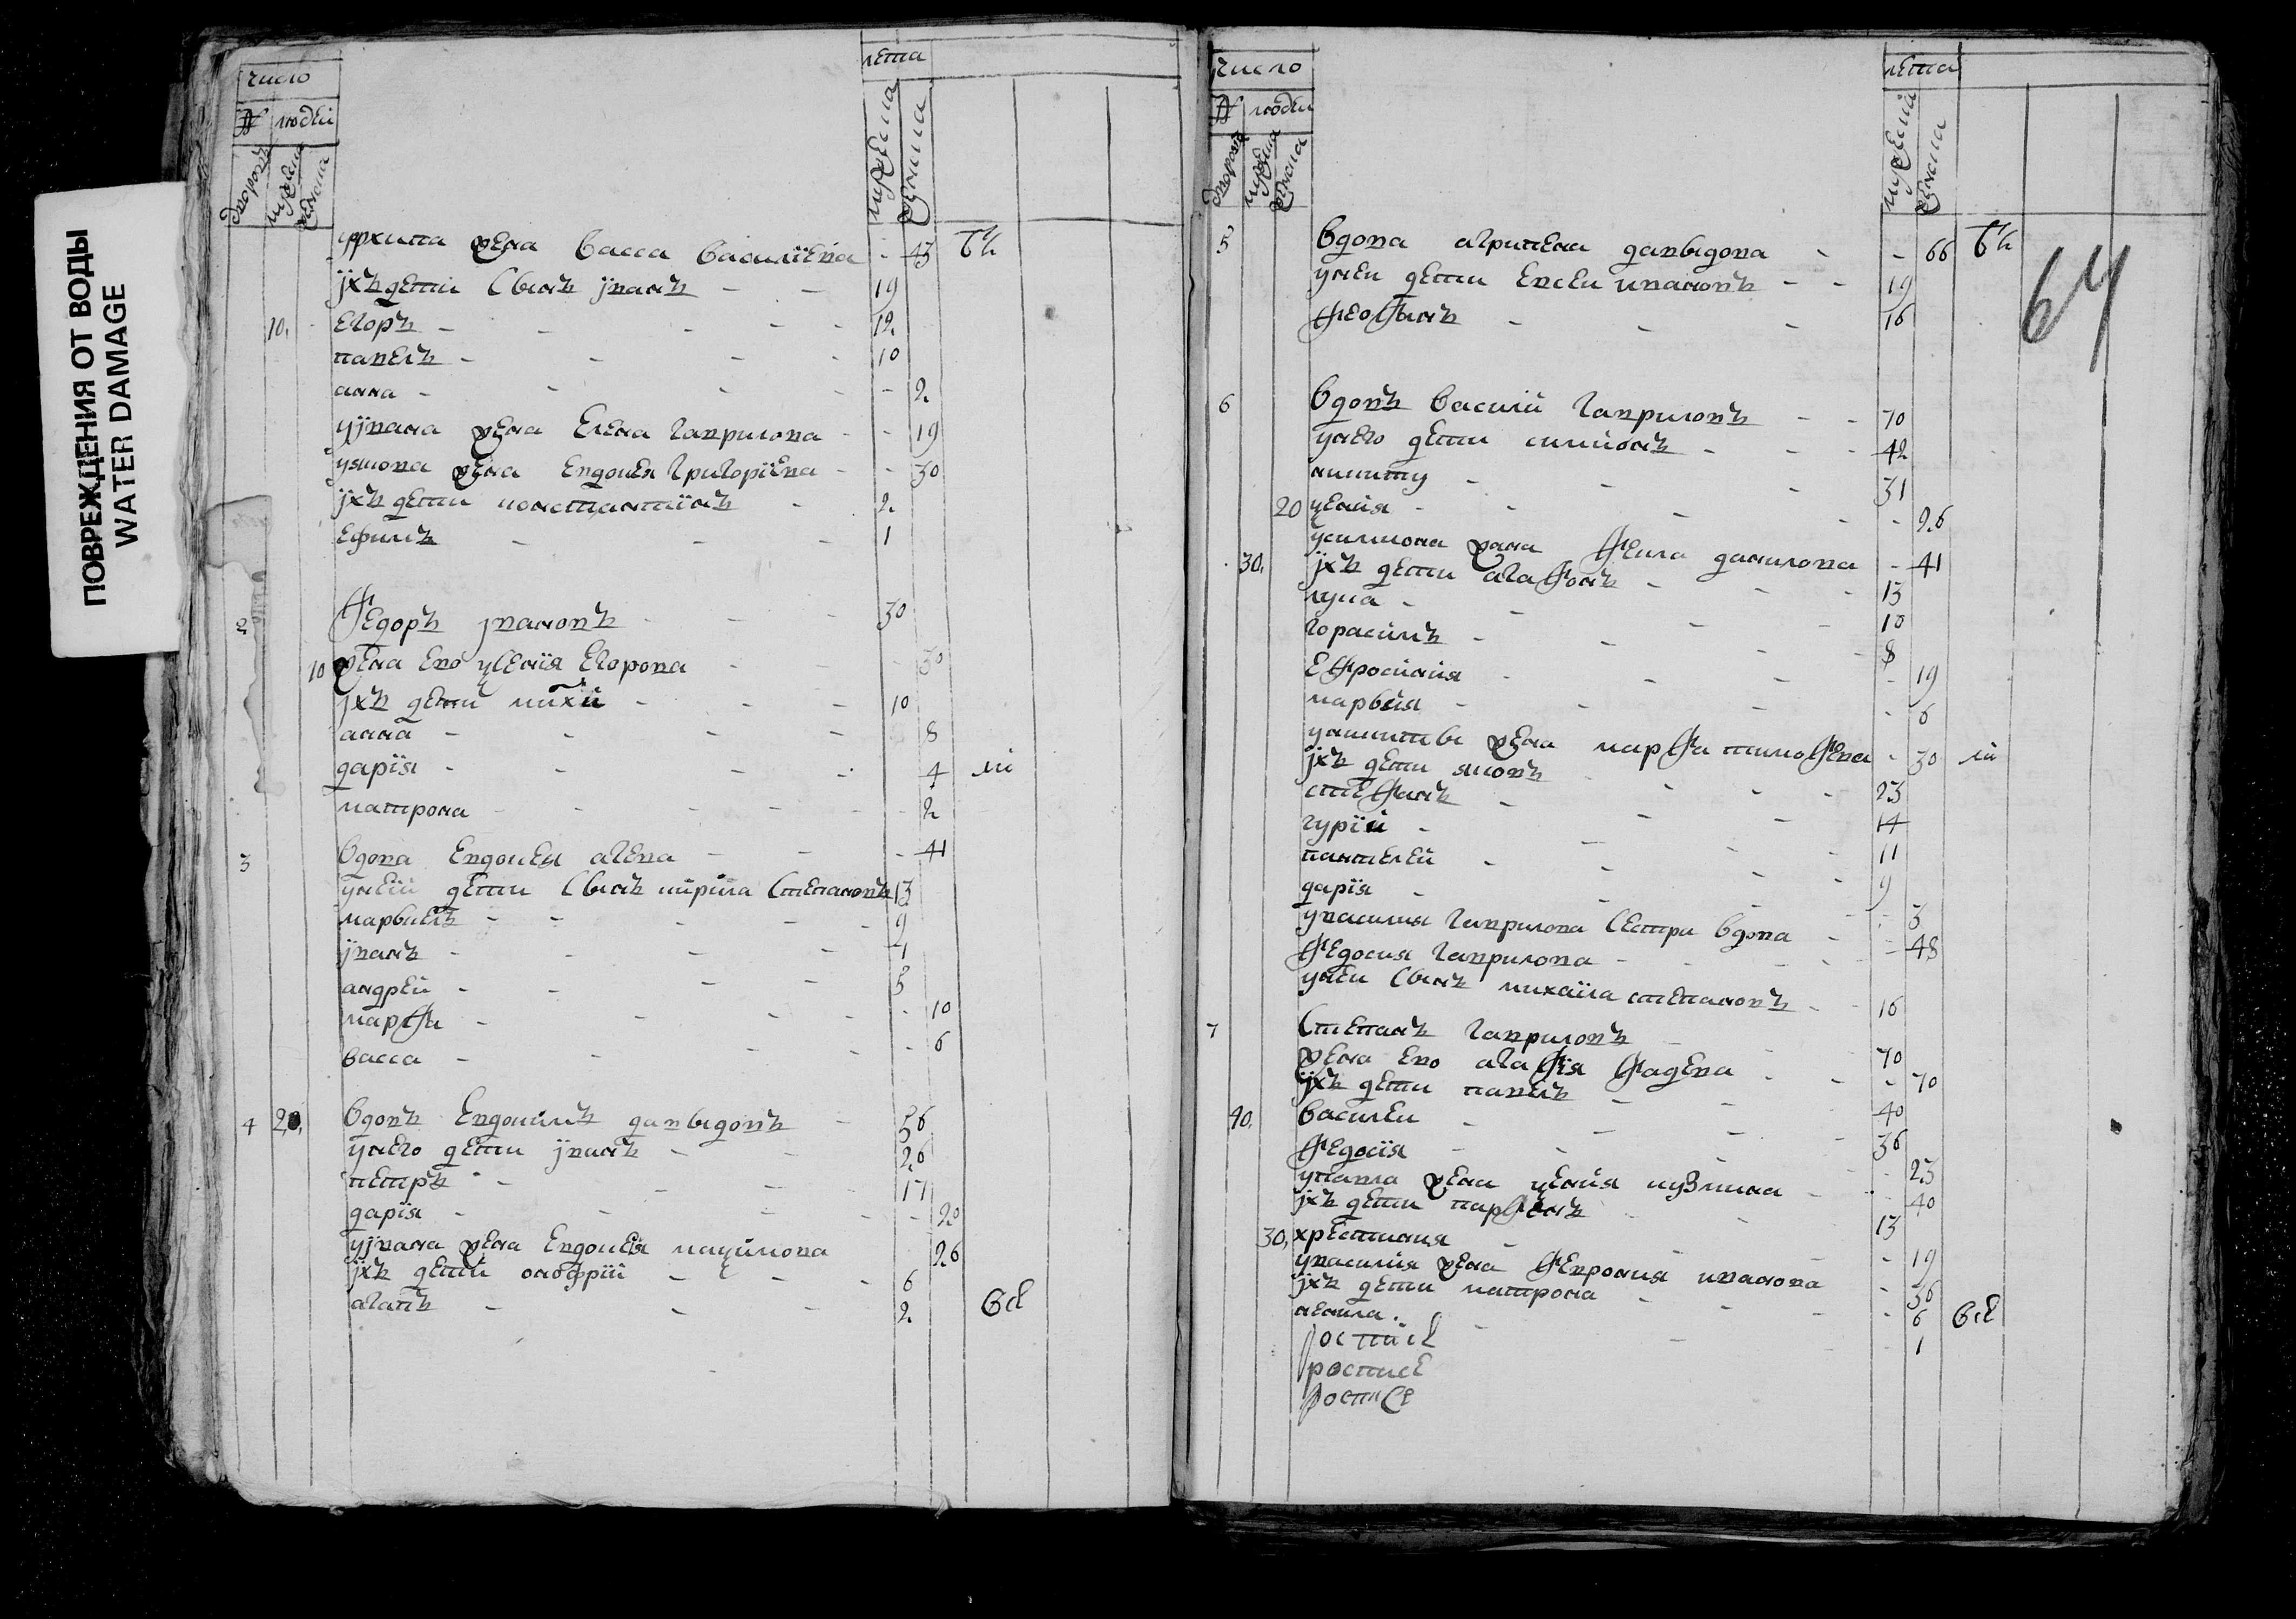 ПОВРЕЖДЕНИЯ ОТ ВОДЫ
WATER DAMAGE
число
лѣта
№ людей
дворовъ мужеска женска
мужеска женска
уархипа жена васса василиева - 43 бы
ихъ дети сынъ иванъ - - 19
10. егоръ - - - - 12
павелъ - - - - 10
анна - - - - 2
уивана жена елена гаврилова - - 19
уякова жена евдокея григориева - - 30
ихъ дети констянтинъ - 2
ефимъ - - - 1
2 федоръ ивановъ - - - 30
10 жена ево ксения егорова - - 30
ихъ дети михѣй - - - 10
анна - - - - 8
дария - - - - 4 ли
матрона - - - - 2
3 вдова евдокея агеева - - - 41
унеий дети сынъ кирила степановъ 13
маркелъ - - - - 9
иванъ - - - - 1
андрей - - - - 3
марфа - - - - 10
васса - - - - 6
4 20. вдовъ евдокимъ давыдовъ - 56
унего дети иванъ - - 26
петръ - - - - 17
дария - - - - 20
уивана жена евдокея максимова 26
ихъ дети онофрий - - - 6
агапъ - - - 2 всѣ
число
лѣта
№ людей
дворовъ мужеска женска
мужеска женска
64
5 вдова агрипена давыдова - - 66 бы
унеи дети евсеи ивановъ - - 19
феофанъ - - - 16
6 вдовъ василий гавриловъ - - 70
унего дети симионъ - - - 42
никиту - - - 31
20 ксения - - - - 26
усимиона жена фекла данилова - 41
30. ихъ дети агафонъ - - - 13
лука - - - - 10
горасимъ - - - - 8
ефросиния - - - - 19
марья - - - - 6
уникиты жена марфа тимофеева - 30 ли
ихъ дети яковъ - - - 23
стефанъ - - - 14
гурий - - - - 11
пантелей - - - - 9
дария - - - - 3
увасилия гаврилова сестра вдова - - 48
федосия гаврилова - - -
унеи сынъ михаила степановъ - - 16
7 степанъ гавриловъ - - 70
жена ево агафия фадеева - - - 70
ихъ дети павелъ - - 40
40. василеи - - - 36
федосия - - - - 23
упавла жена ксения кузмина - - 40
ихъ дети парфенъ - - 13
30. хрестиния - - - 19
увасилия жена феврония иванова - 36
ихъ дети матрона - - - 6 всѣ
ненила - - - 1
роспись
росписе
роспис